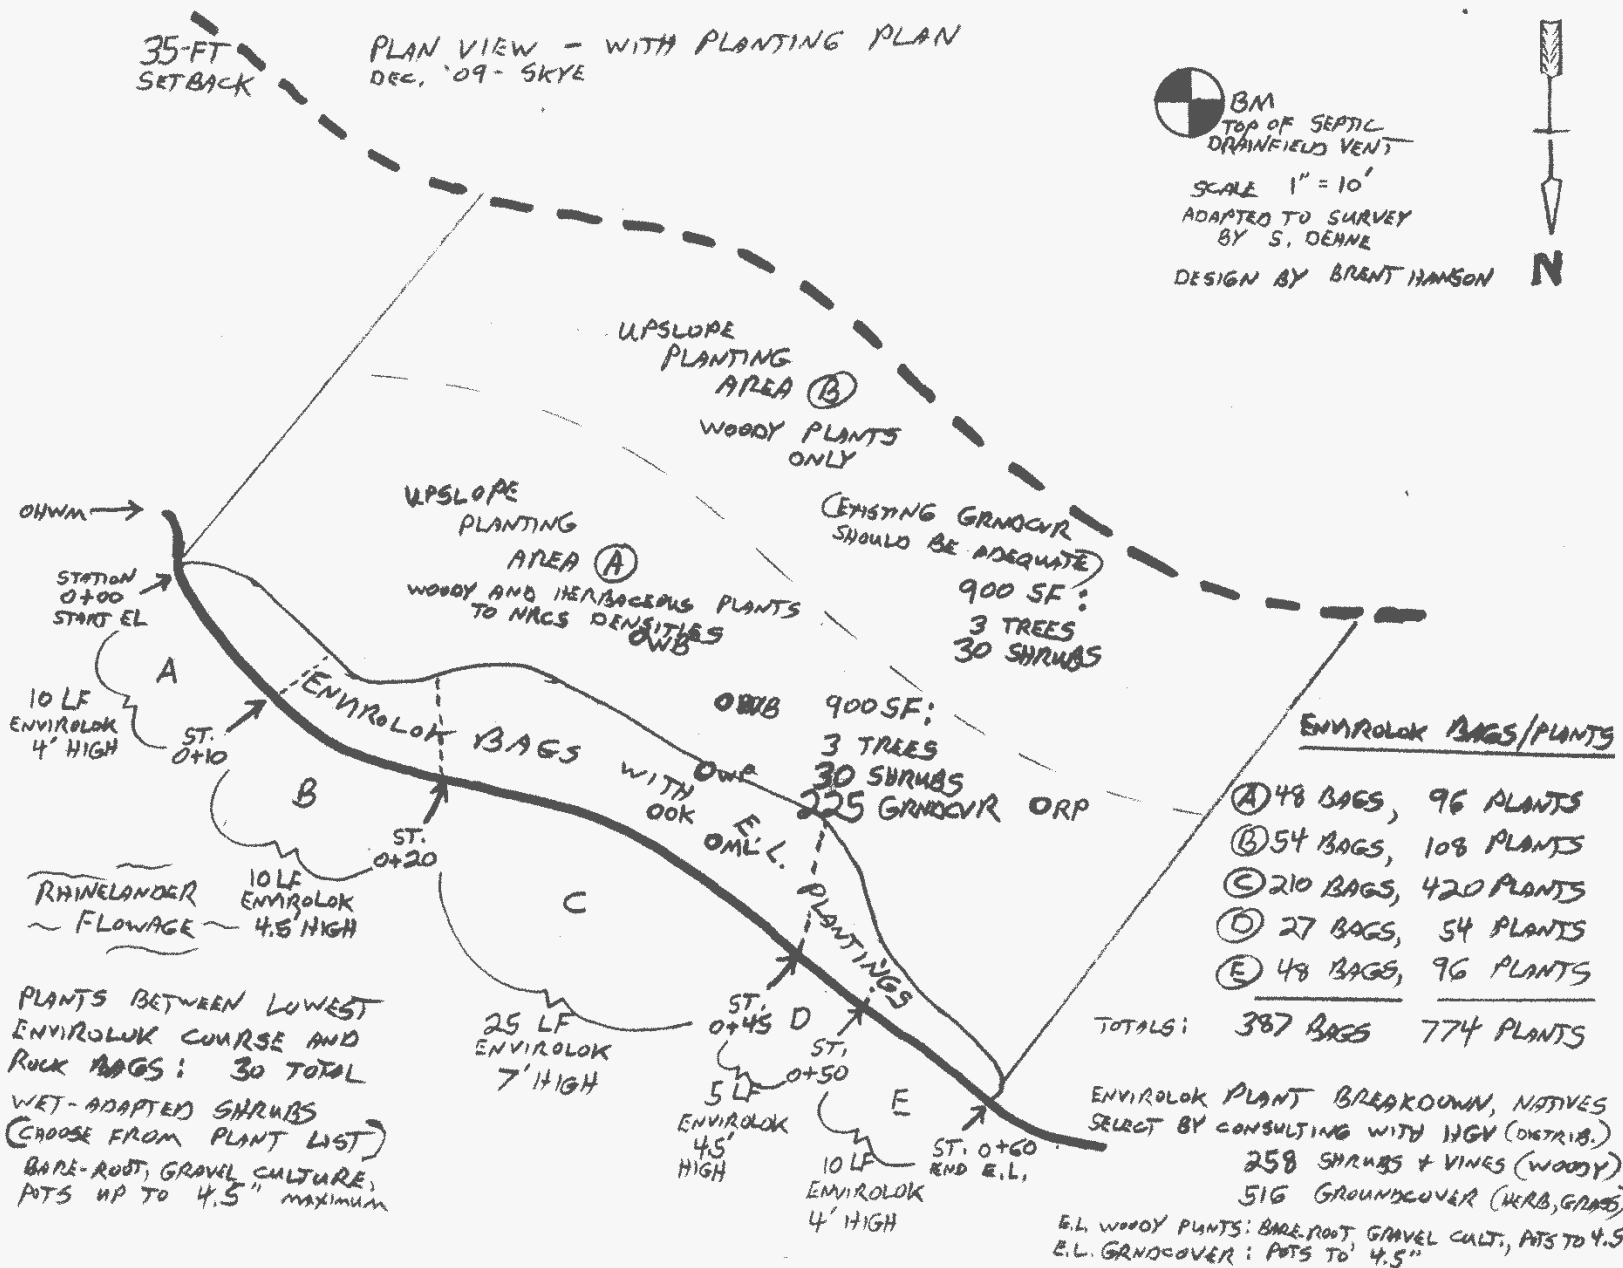 35-FT
SETBACK
PLAN VIEW - WITH PLANTING PLAN
DEC. '09 - SKYE
BM
TOP OF SEPTIC
DRAINFIELD VENT
SCALE 1" = 10'
ADAPTED TO SURVEY
BY S. DEHNE
DESIGN BY BRENT HANSON
N
UPSLOPE
PLANTING
AREA B
WOODY PLANTS
ONLY
(EXISTING GRNDCVR
SHOULD BE ADEQUATE)
900 SF:
3 TREES
30 SHRUBS
OHWM
UPSLOPE
PLANTING
AREA A
WOODY AND HERBACEOUS PLANTS
TO NRCS DENSITIES
OWB
OWB
900 SF:
3 TREES
30 SHRUBS
225 GRNDCVR
OWP
ORP
OOK
OML
STATION
0+00
START EL
A
10 LF
ENVIROLOK
4' HIGH
ST.
0+10
ENVIROLOK BAGS WITH E.L. PLANTINGS
B
ST.
0+20
10 LF
ENVIROLOK
4.5' HIGH
RHINELANDER
FLOWAGE
C
25 LF
ENVIROLOK
7' HIGH
ST.
0+45
D
5 LF
ENVIROLOK
4.5'
HIGH
ST.
0+50
E
10 LF
ENVIROLOK
4' HIGH
ST. 0+60
END E.L.
PLANTS BETWEEN LOWEST
ENVIROLOK COURSE AND
ROCK BAGS: 30 TOTAL
WET-ADAPTED SHRUBS
(CHOOSE FROM PLANT LIST)
BARE-ROOT, GRAVEL CULTURE,
POTS UP TO 4.5" MAXIMUM
ENVIROLOK BAGS/PLANTS
A 48 BAGS, 96 PLANTS
B 54 BAGS, 108 PLANTS
C 210 BAGS, 420 PLANTS
D 27 BAGS, 54 PLANTS
E 48 BAGS, 96 PLANTS
TOTALS: 387 BAGS 774 PLANTS
ENVIROLOK PLANT BREAKDOWN, NATIVES
SELECT BY CONSULTING WITH HGV (DISTRIB.)
258 SHRUBS + VINES (WOODY)
516 GROUNDCOVER (HERB, GRASS)
E.L. WOODY PLANTS: BARE ROOT, GRAVEL CULT., POTS TO 4.5
E.L. GRNDCOVER: POTS TO 4.5"